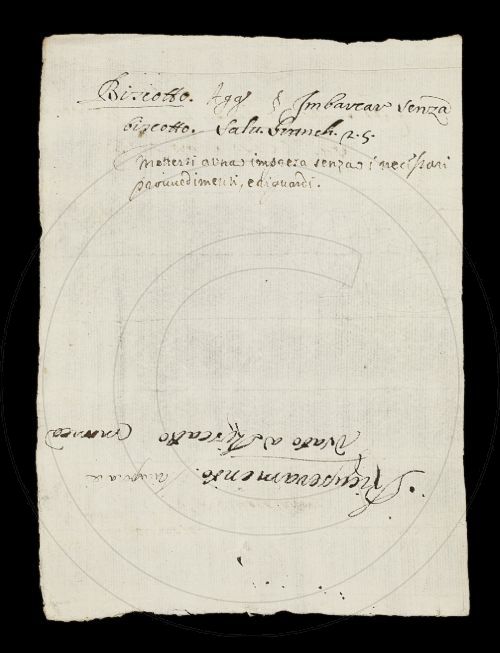 Biscotto. Agg. § Imbarcar senza
biscotto. Salv. Granch. 2. 5.
Mettersi a una impresa senza i necessari
provvedimenti, e riguardi.
Ricuperamento.
Vato di Riscatto manca